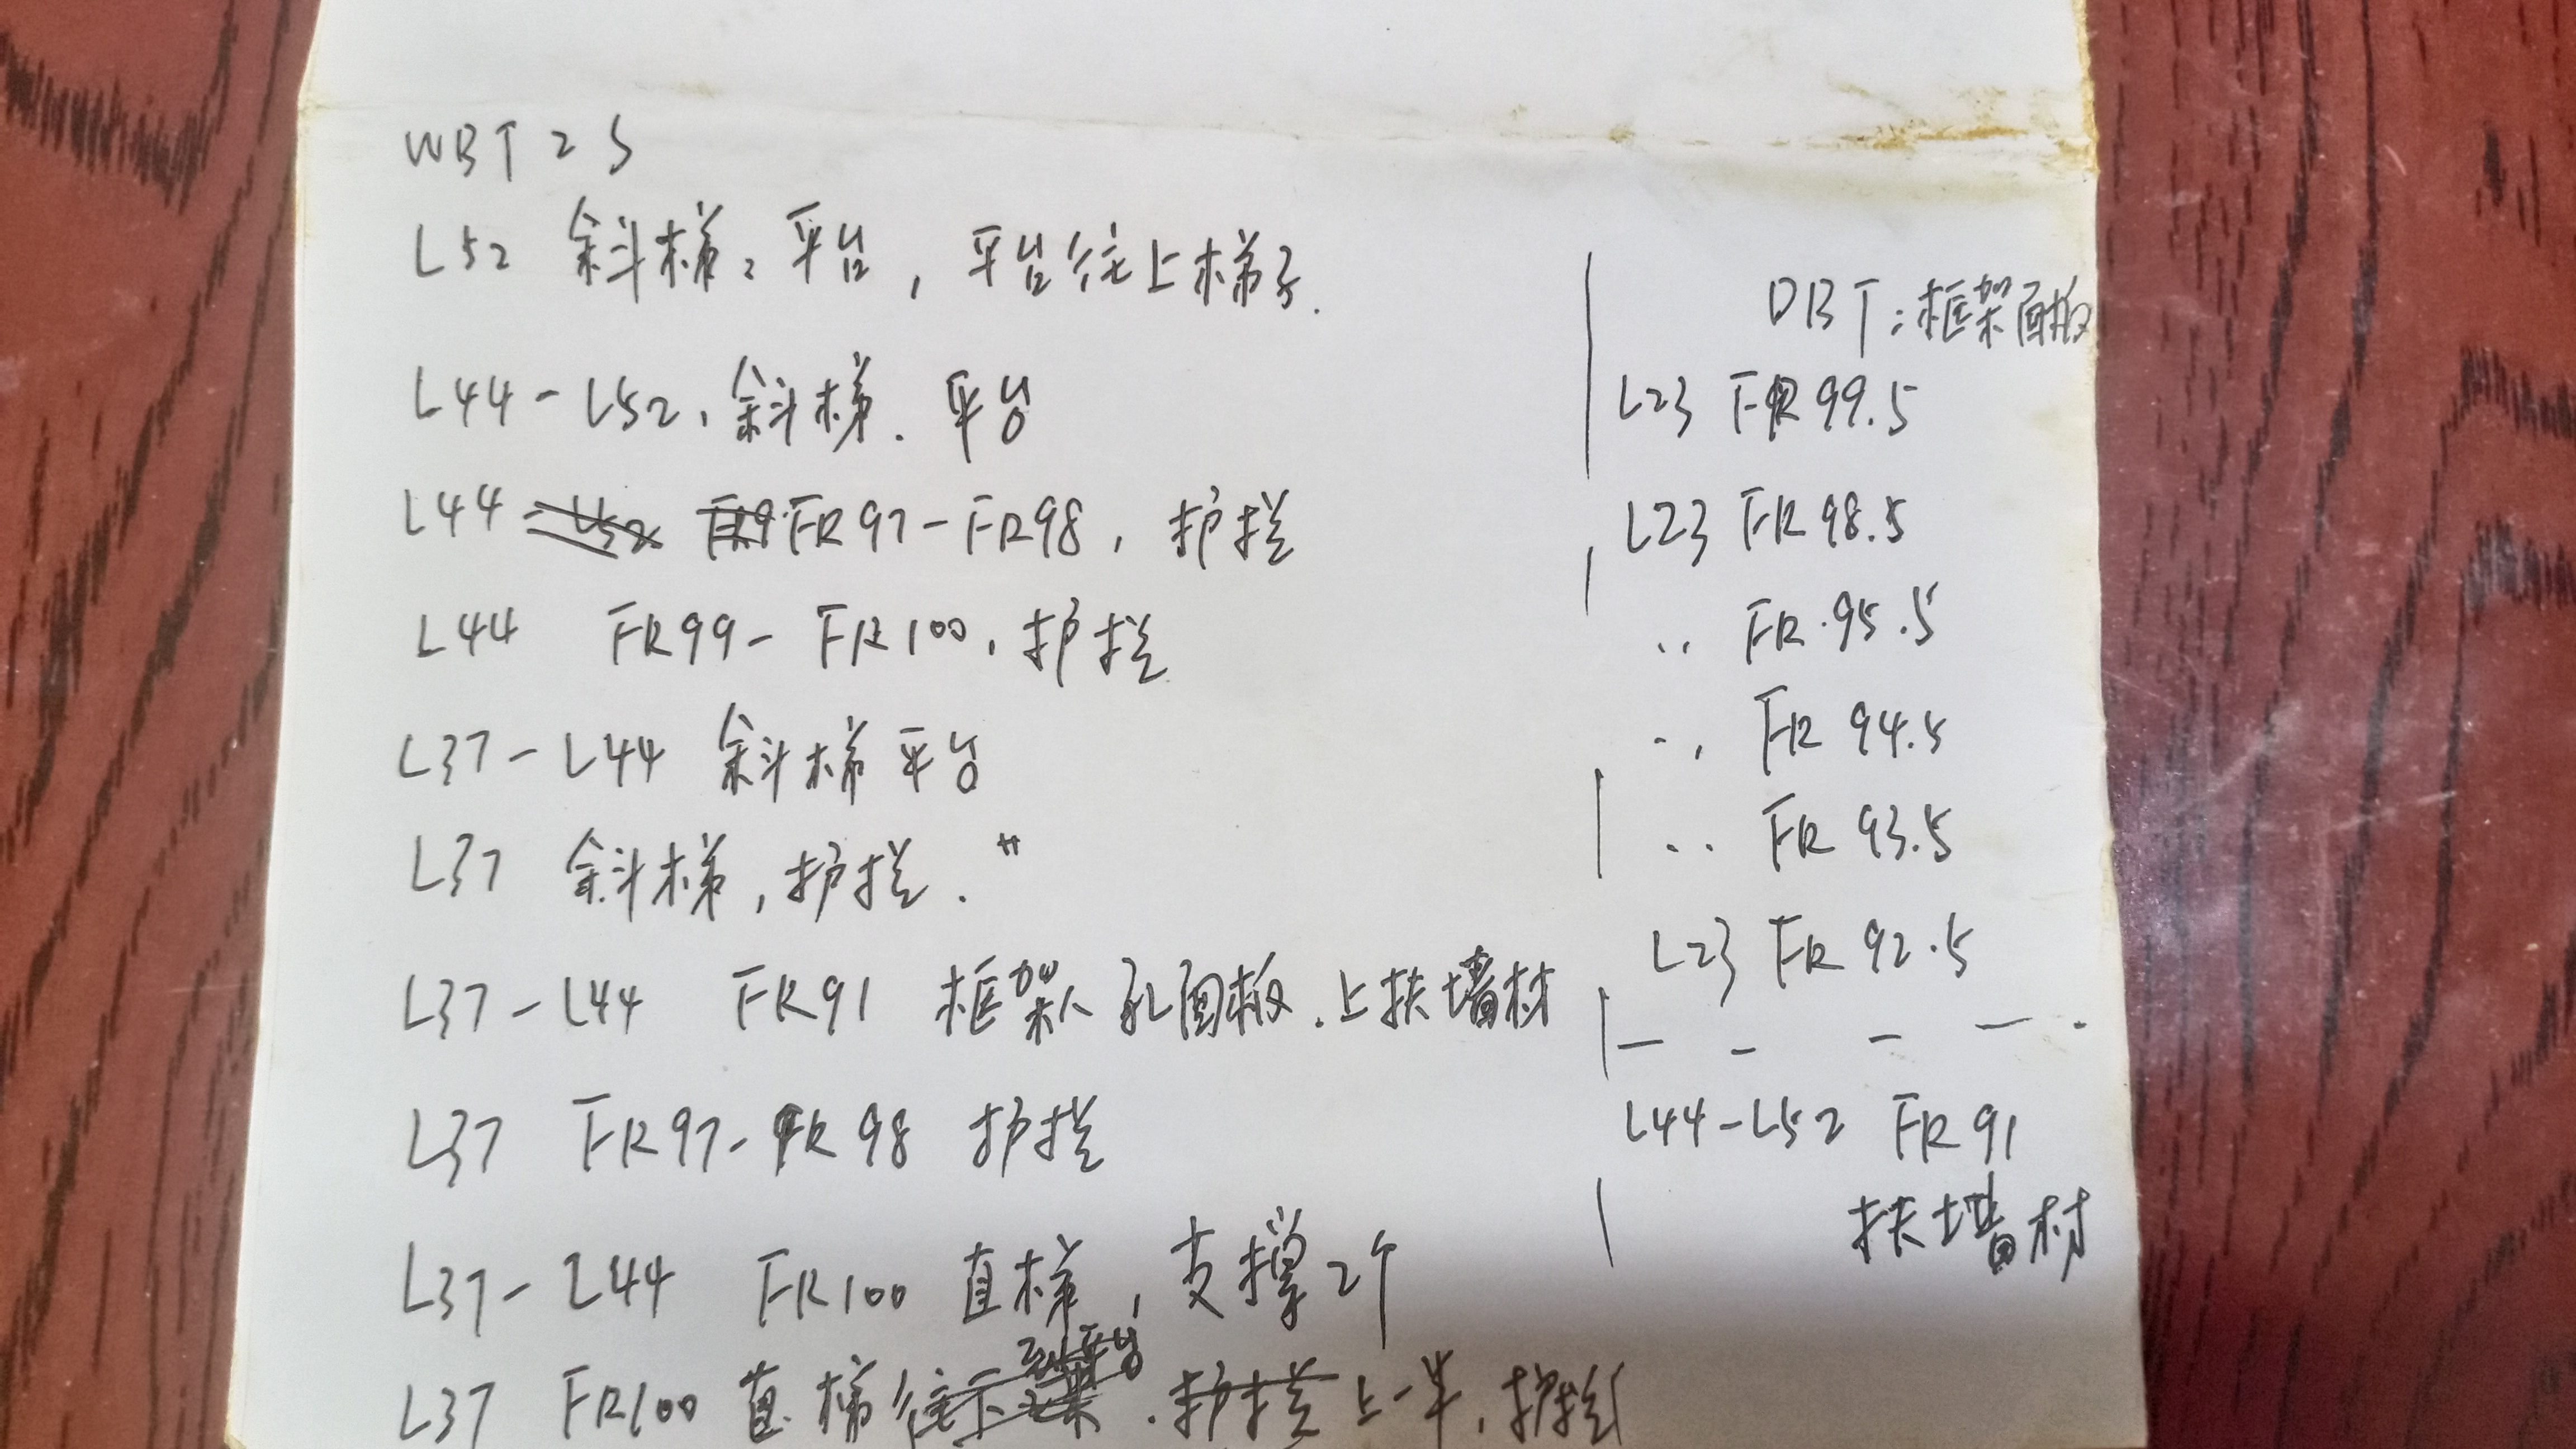 WBT 2 S
L52 斜梯, 平台, 平台往上梯子.
L44-L52, 斜梯. 平台
L44 FR97-FR98, 护拦
L44 FR99-FR100, 护拦
L37-L44 斜梯 平台
L37 斜梯, 护拦.
L37-L44 FR91 框架人孔面板. 上扶墙材
L37 FR97-FR98 护拦
L37-L44 FR100 直梯, 支撑2个
L37 FR100 直梯 平台. 护拦上一半, 护拦
DBT: 框架面板
L23 FR99.5
L23 FR98.5
.. FR.95.5
.. FR 94.5
.. FR 93.5
L23 FR 92.5
— - - — .
L44-L52 FR91
扶墙材